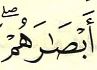 أَبْصَٰرَهُمْۖ